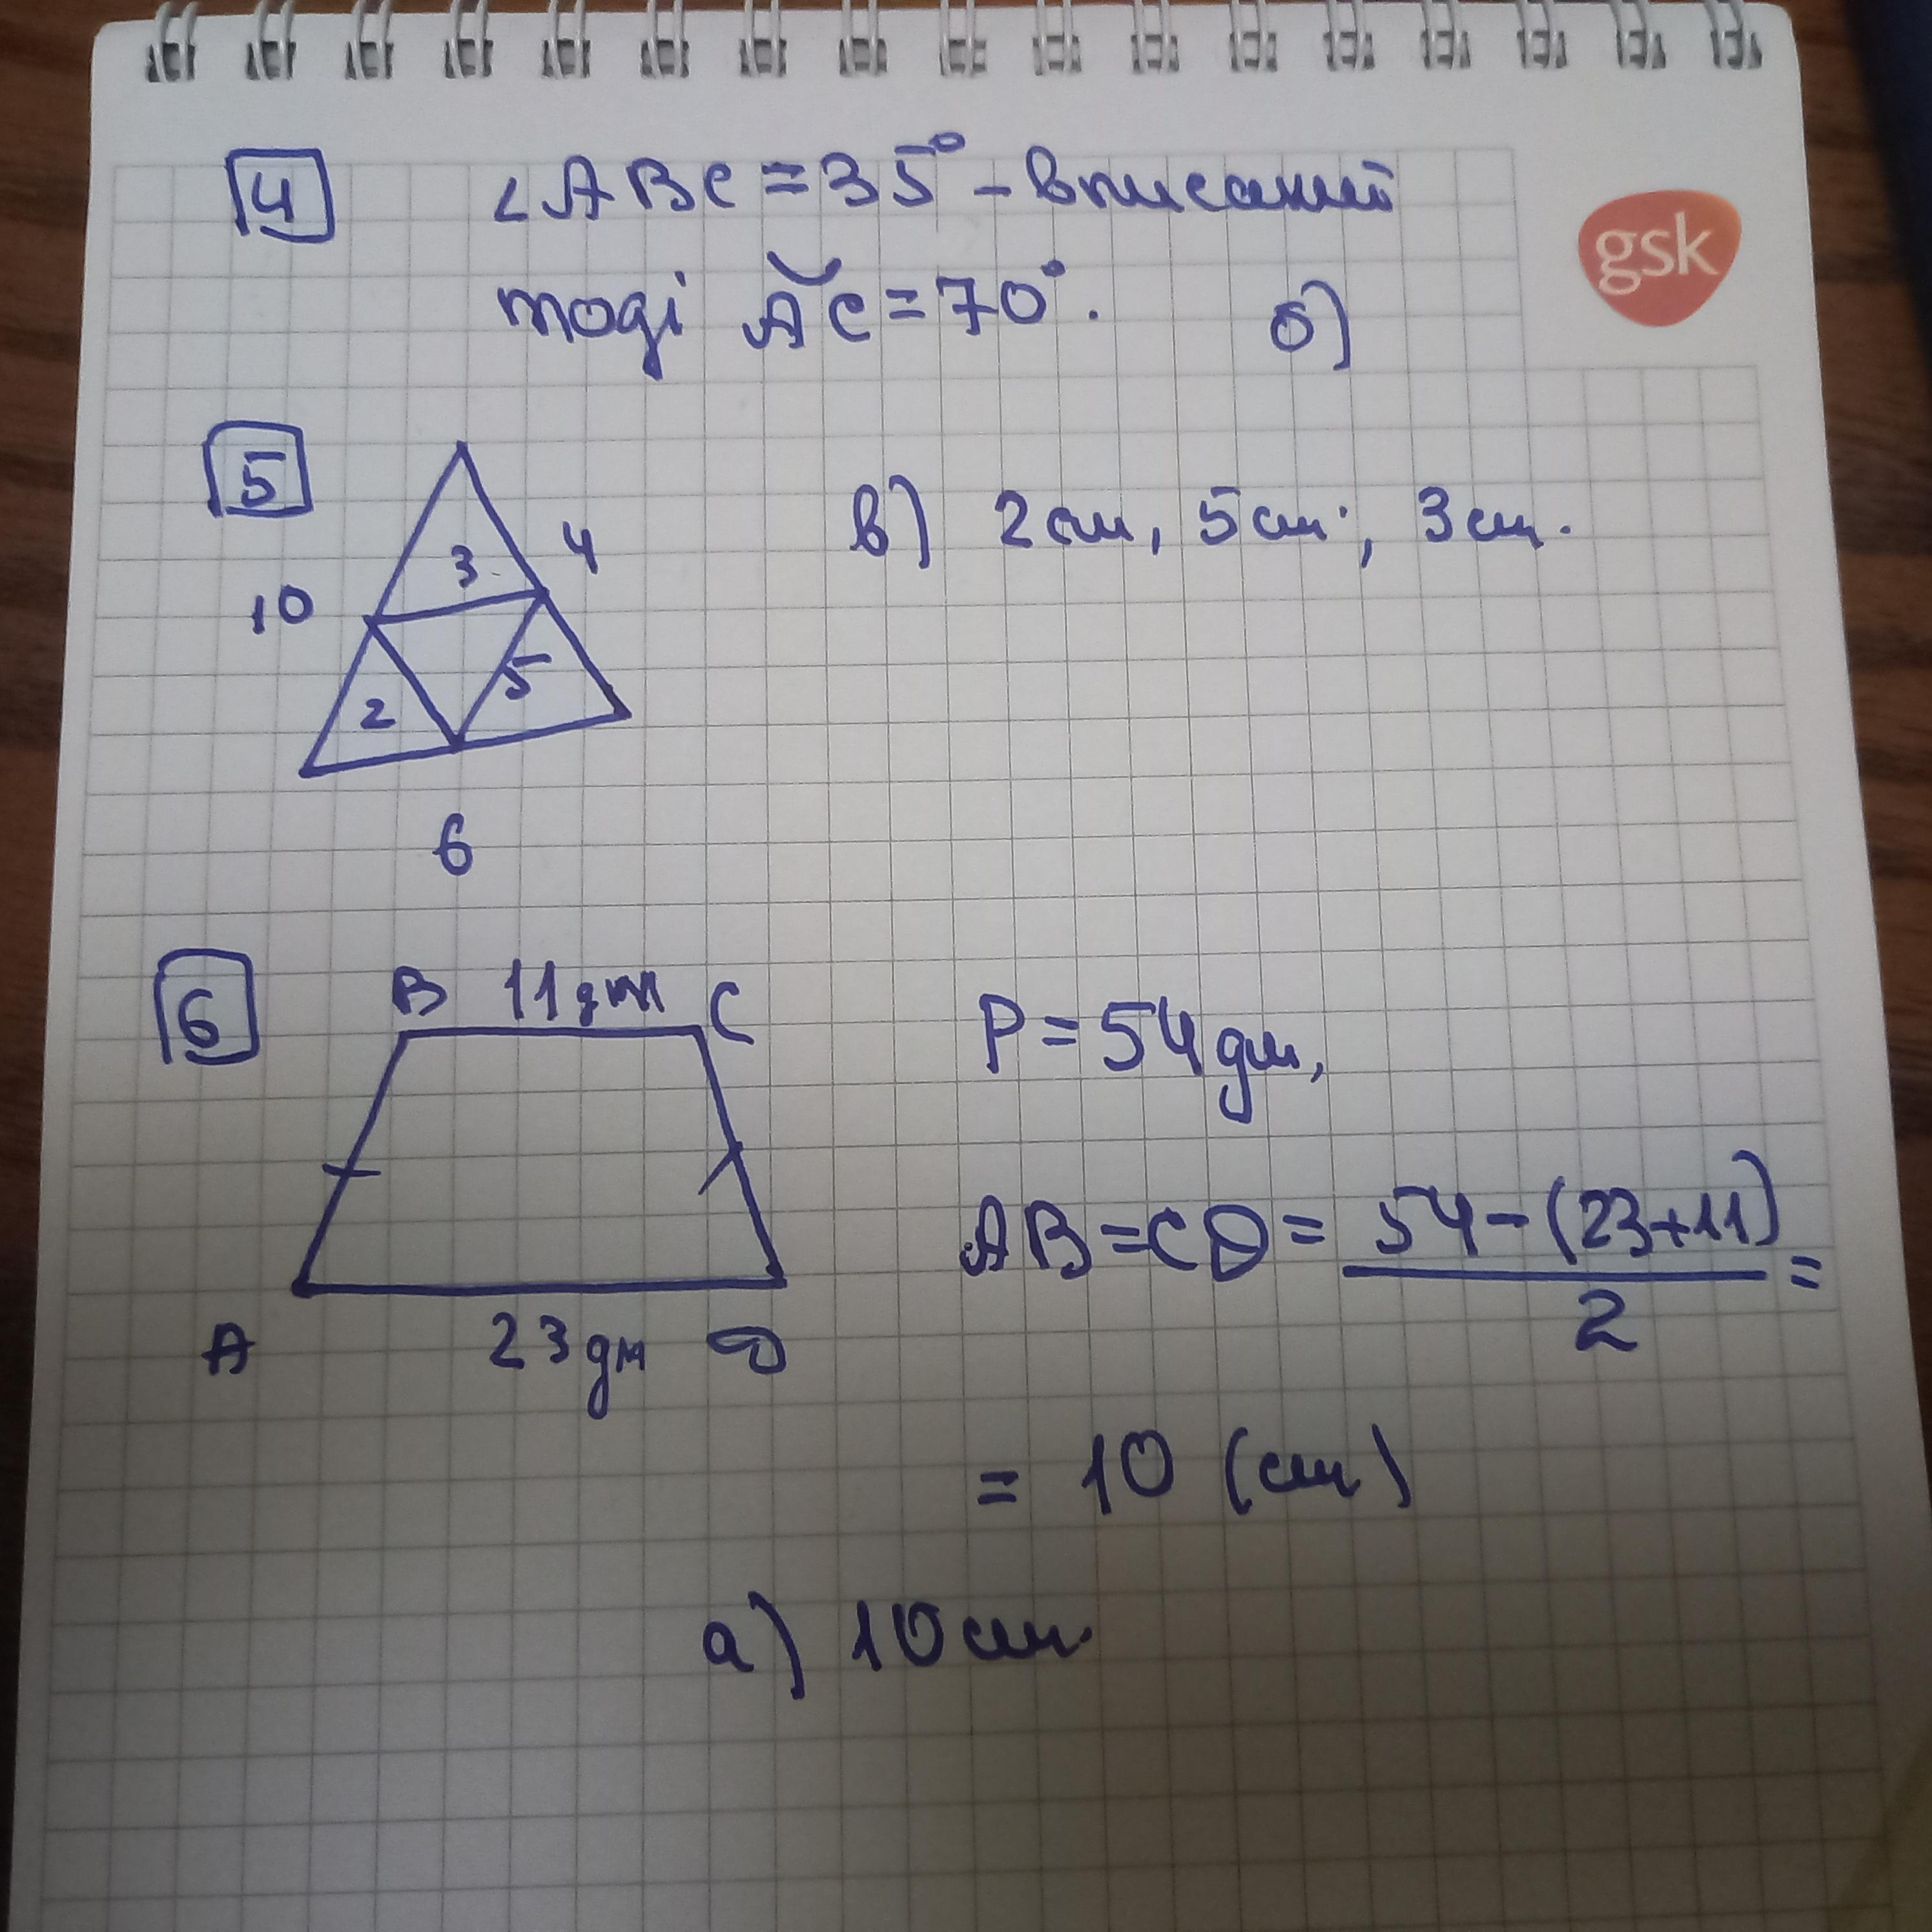 4 ∠ABC = 35° – вписаний
тоді ◡AC = 70°. б)
gsk
5
3 4
10
2 5
6
в) 2см, 5см; 3см.
6 B 11дм C
A 23дм D
P = 54дм,
AB = CD = (54 – (23 + 11))/2 =
= 10 (см)
а) 10см.